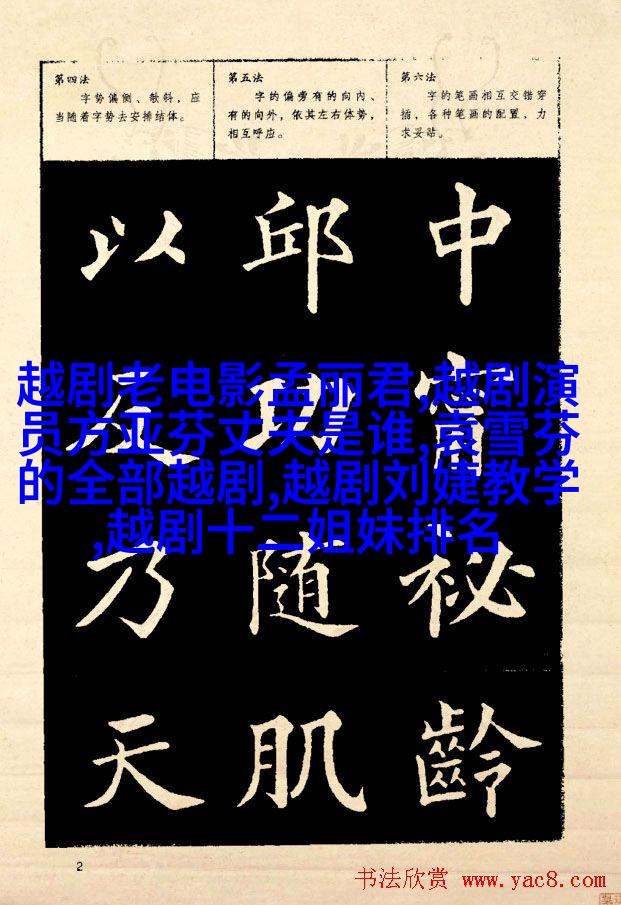 第四法
字势偏侧、欹斜，应
当随着字势去安排结体。
第五法
字的偏旁有的向内、
有的向外，依其左右体势，
相互呼应。
第六法
字的笔画相互交错穿
插，各种笔画的配置，力
求妥贴。
以 邱 中
甯
乃 随 秘
天 肌 齡
越剧老电影孟丽君,越剧演
员方亚芬丈夫是谁,袁雪芬
的全部越剧,越剧刘婕教学
,越剧十二姐妹排名
2
书法欣赏 www.yac8.com